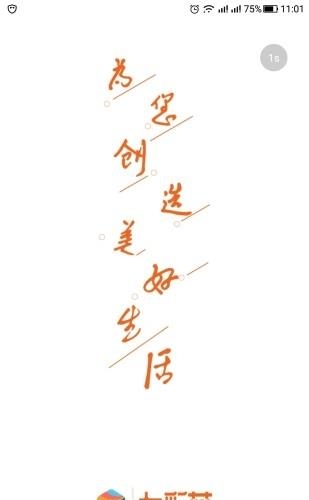 75% 11:01
1s
為
您
创
造
美
好
生
活